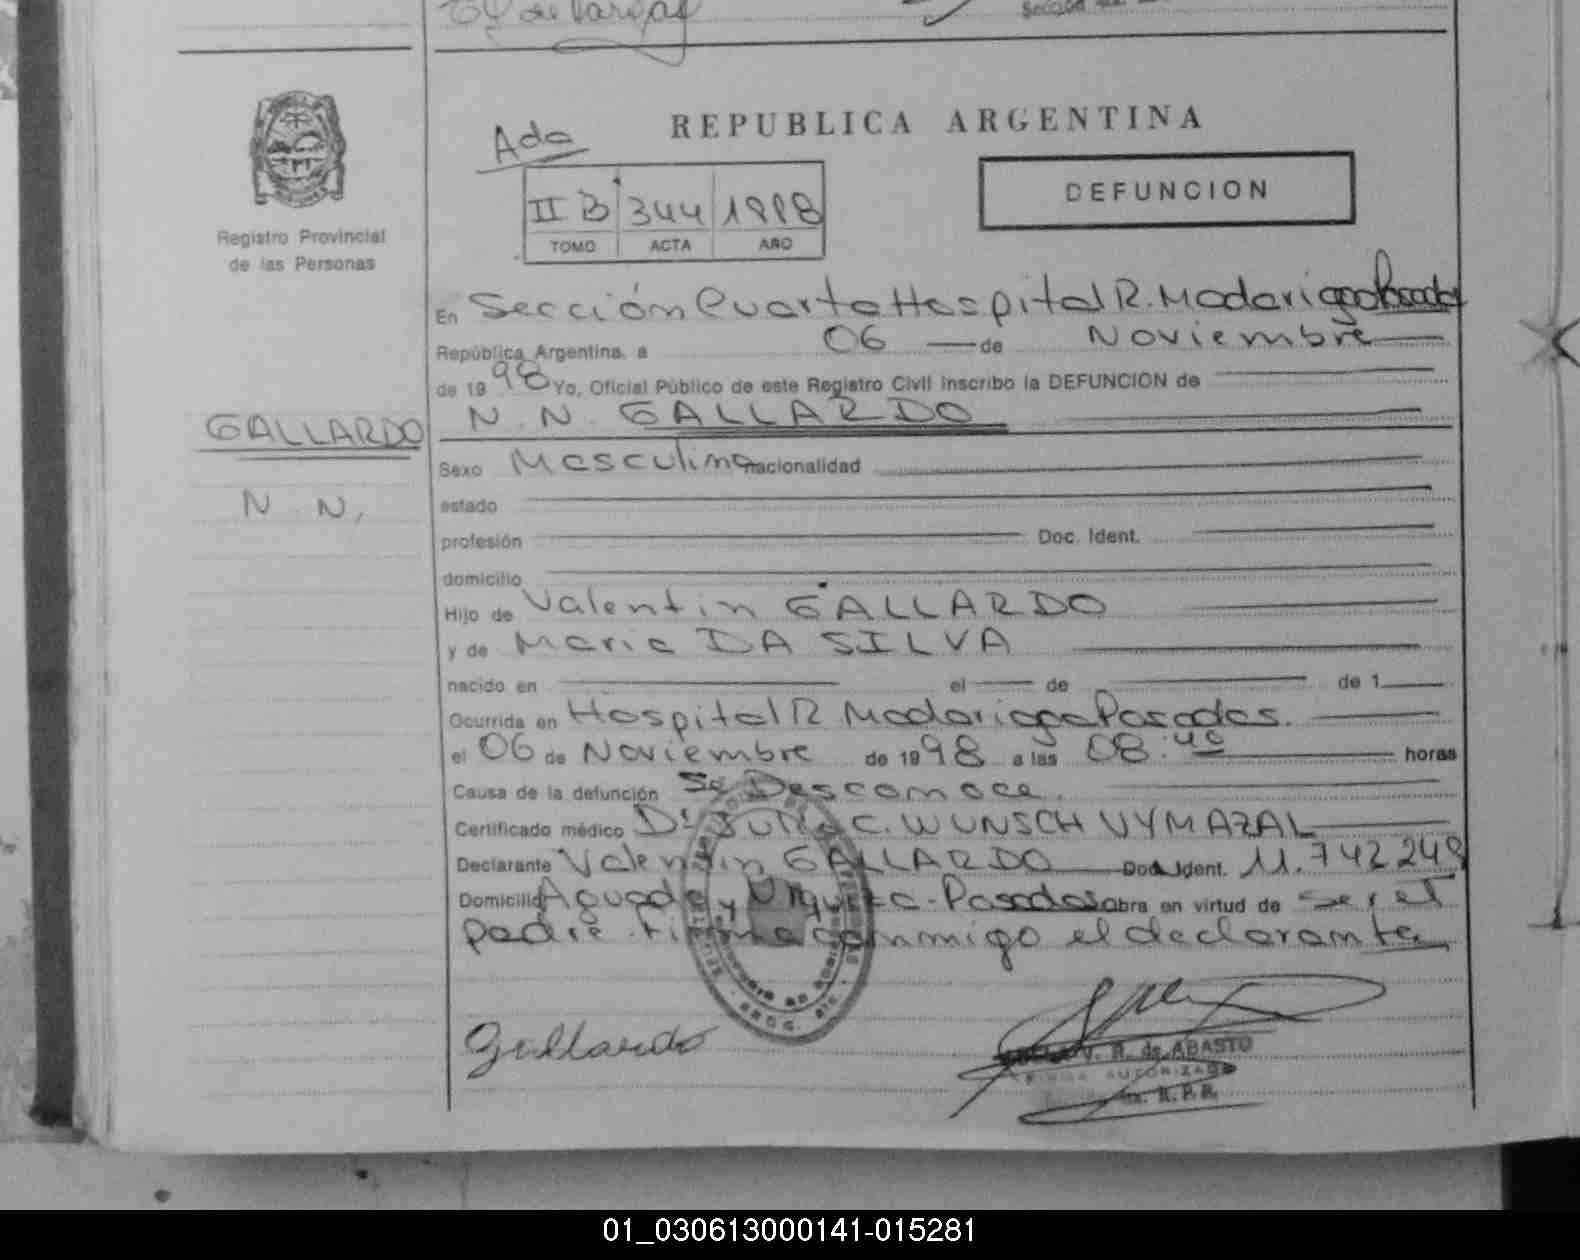 REPUBLICA ARGENTINA
Ada
DEFUNCION
II B 344 1998
TOMO ACTA AÑO
Registro Provincial
de las Personas
En Sección Cuarta Hospital R. Madariaga Posadas
República Argentina, a 06 de Noviembre
de 1998 Yo, Oficial Público de este Registro Civil inscribo la DEFUNCION de
GALLARDO
N. N. GALLARDO
Sexo Masculino nacionalidad
N. N.
estado
profesión Doc. Ident.
domicilio
Hijo de Valentin GALLARDO
y de Maria DA SILVA
nacido en el de de 1
Ocurrida en Hospital R Madariaga Posadas.
el 06 de Noviembre de 1998 a las 08:40 horas
Causa de la defunción Se Desconoce.
Certificado médico Dr Julio C. WUNSCH VYMAZAL
Declarante Valentin GALLARDO Doc. Ident. 11.742.248
Domicilio Aguado y Urquiza - Posadas obra en virtud de ser el
padre. firma conmigo el declarante
Gallardo
V. R. de ABASTO
FIRMA AUTORIZADA
R. P. P.
01_030613000141-015281